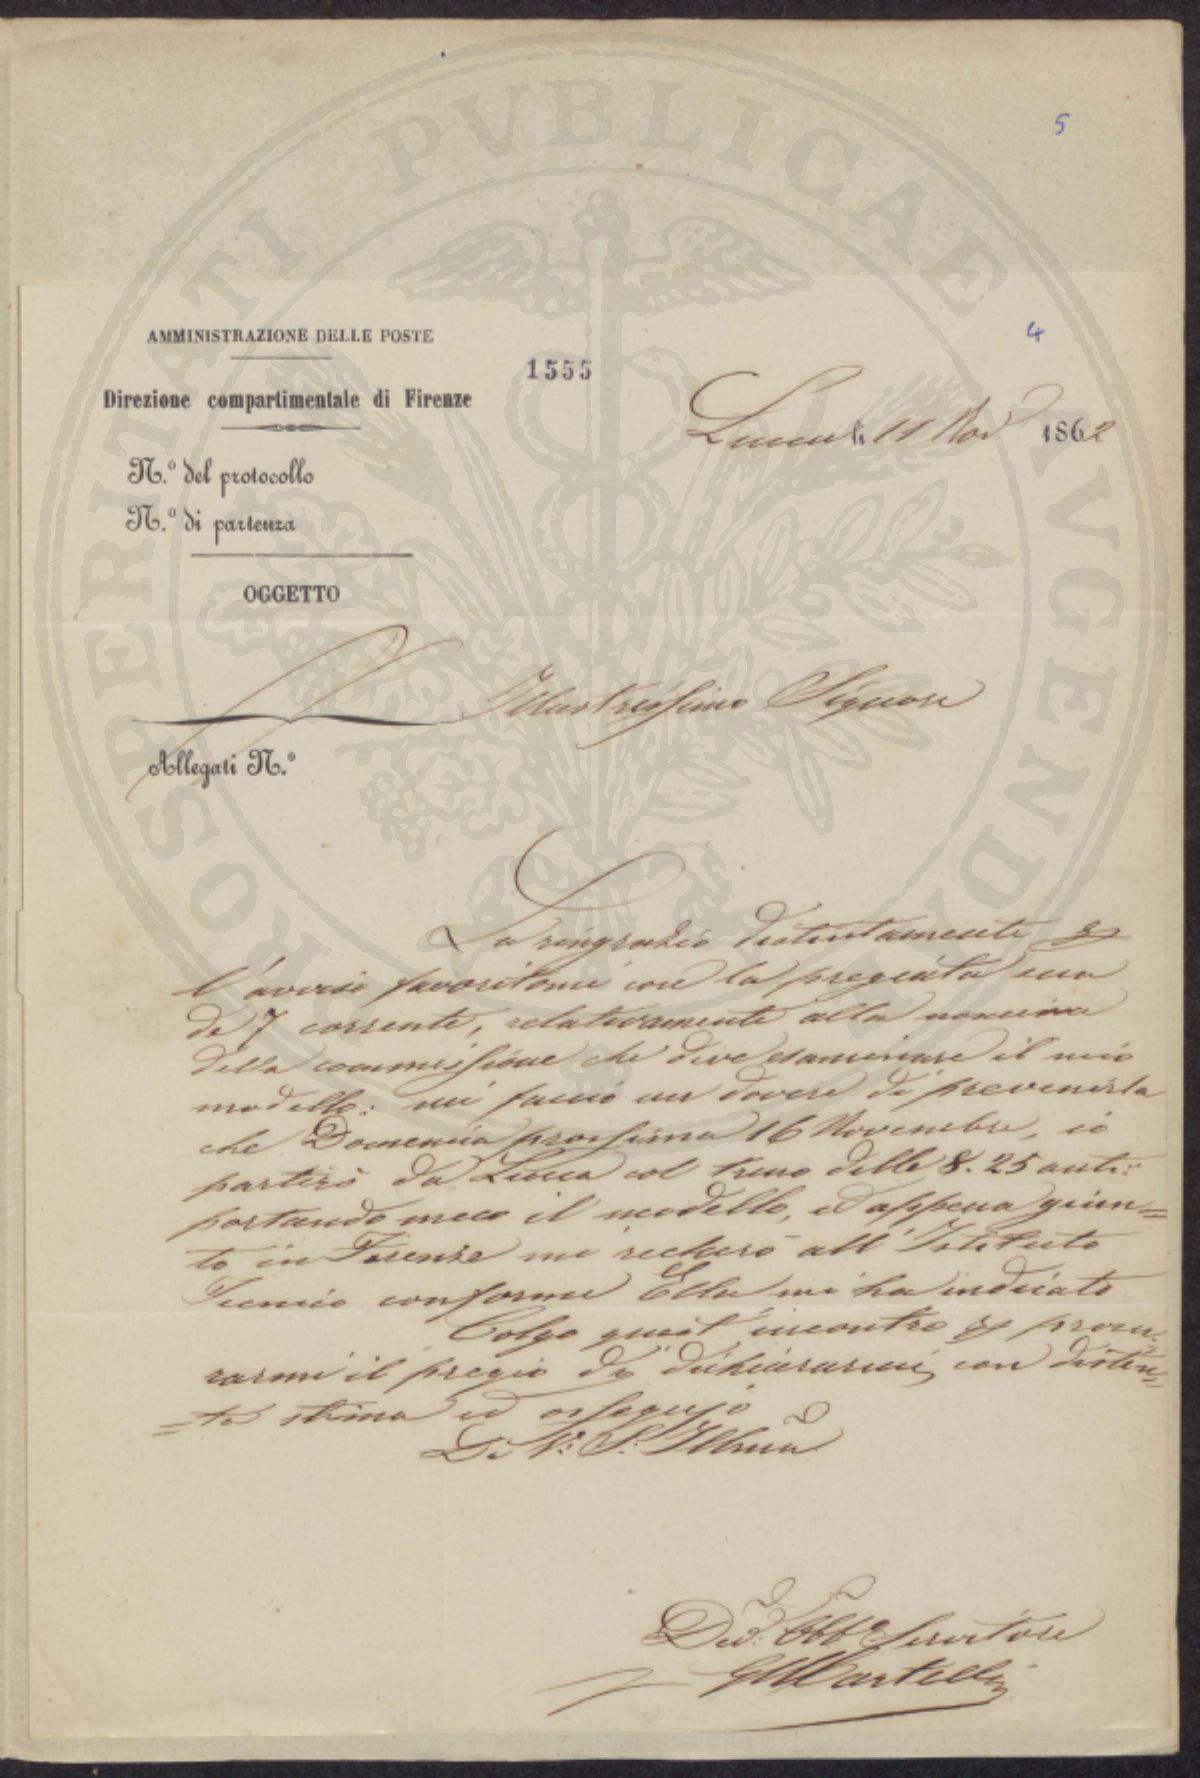 5
4
AMMINISTRAZIONE DELLE POSTE
1555
Direzione compartimentale di Firenze
Lucca li 11 Nov 1862
N.º del protocollo
N.º di partenza
OGGETTO
Illustrissimo Signore
Allegati N.º
La ringrazio distintamente
l'avviso favoritomi con la pregiata sua
de 7 corrente, relativamente alla nomina
della commissione che deve esaminare il mio
modello: mi faccio un dovere di prevenirla
che Domenica prossima 16 Novembre, io
partirò da Lucca col treno delle 8.25 anti:
portando meco il modello, ed appena giun=
to in Firenze mi recherò all'Istituto
Tecnico conforme Ella mi ha indicato
Colgo quest'incontro procu=
rarmi il pregio di dichiararmi con distin=
=ta stima ed ossequio
Di V: S: Illma
Dev: Obbo Servitore
G Martelli
PROSPERITATI PVBLICAE AVGENDAE